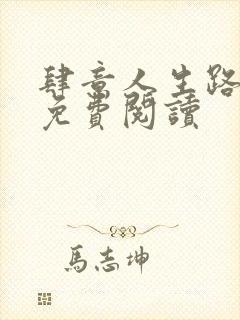 肆意人生路
免費閱讀
馬志坤